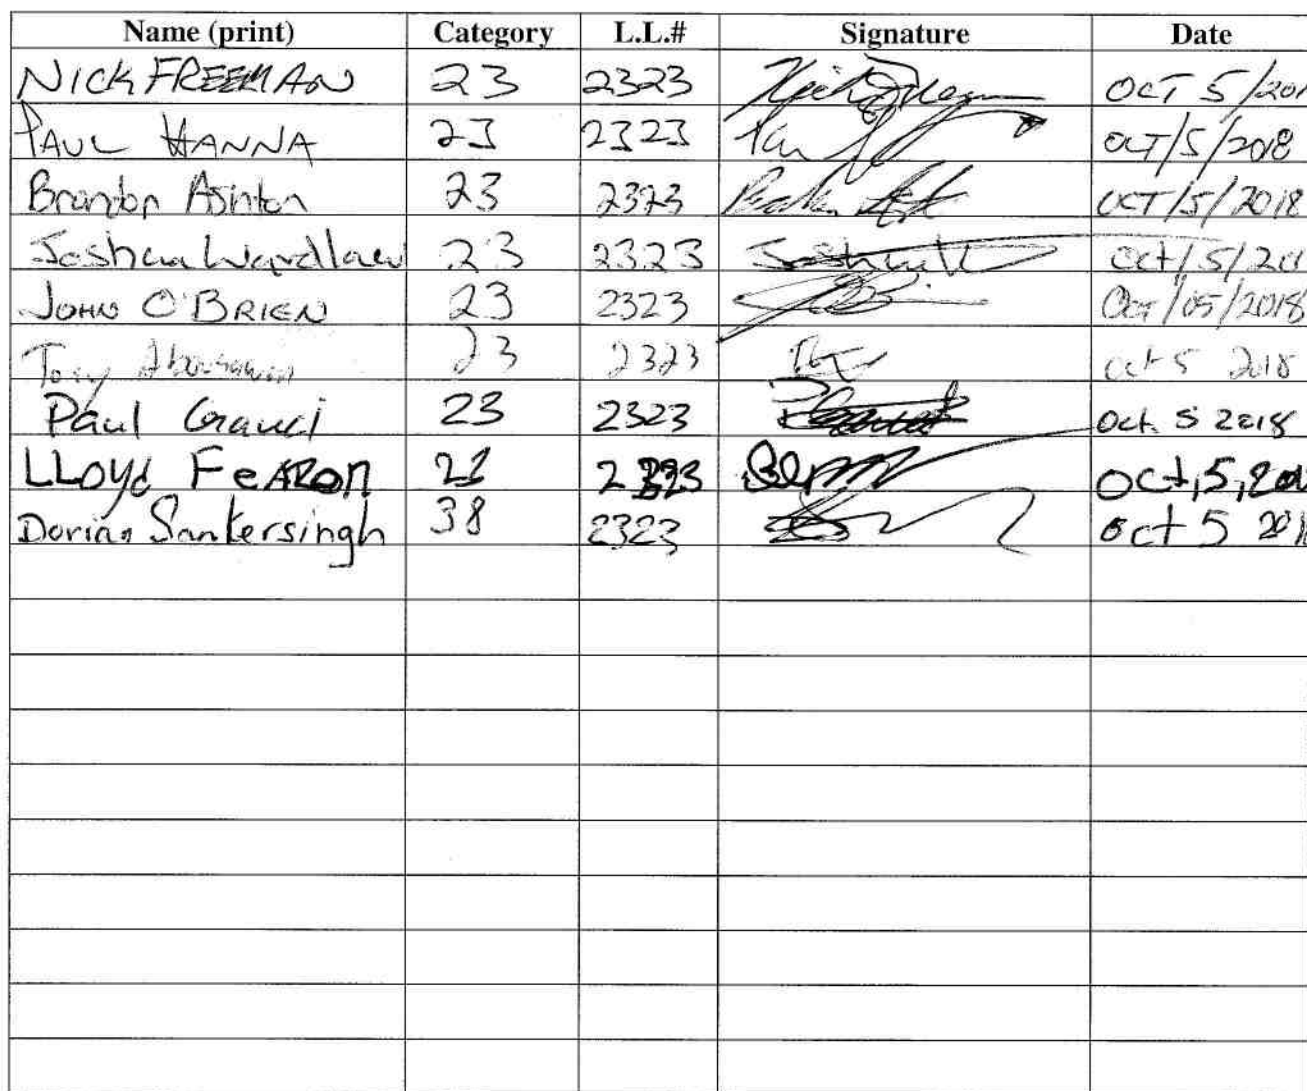 Name (print) Category L.L.# Signature Date
NICK FREEMAN 23 2323 OCT 5/201
PAUL HANNA 23 2323 OCT/5/2018
Brandon Ashton 23 2323 OCT/5/2018
Joshua Wardlaw 23 2323 Oct/5/201
JOHN O'BRIEN 23 2323 Oct/05/2018
Tony 23 2323 oct 5 2018
Paul Grauci 23 2323 Oct. 5 2018
LLoyd FeARon 2323 Oct,5,201
Dorian Sankersingh 38 2323 oct 5 201